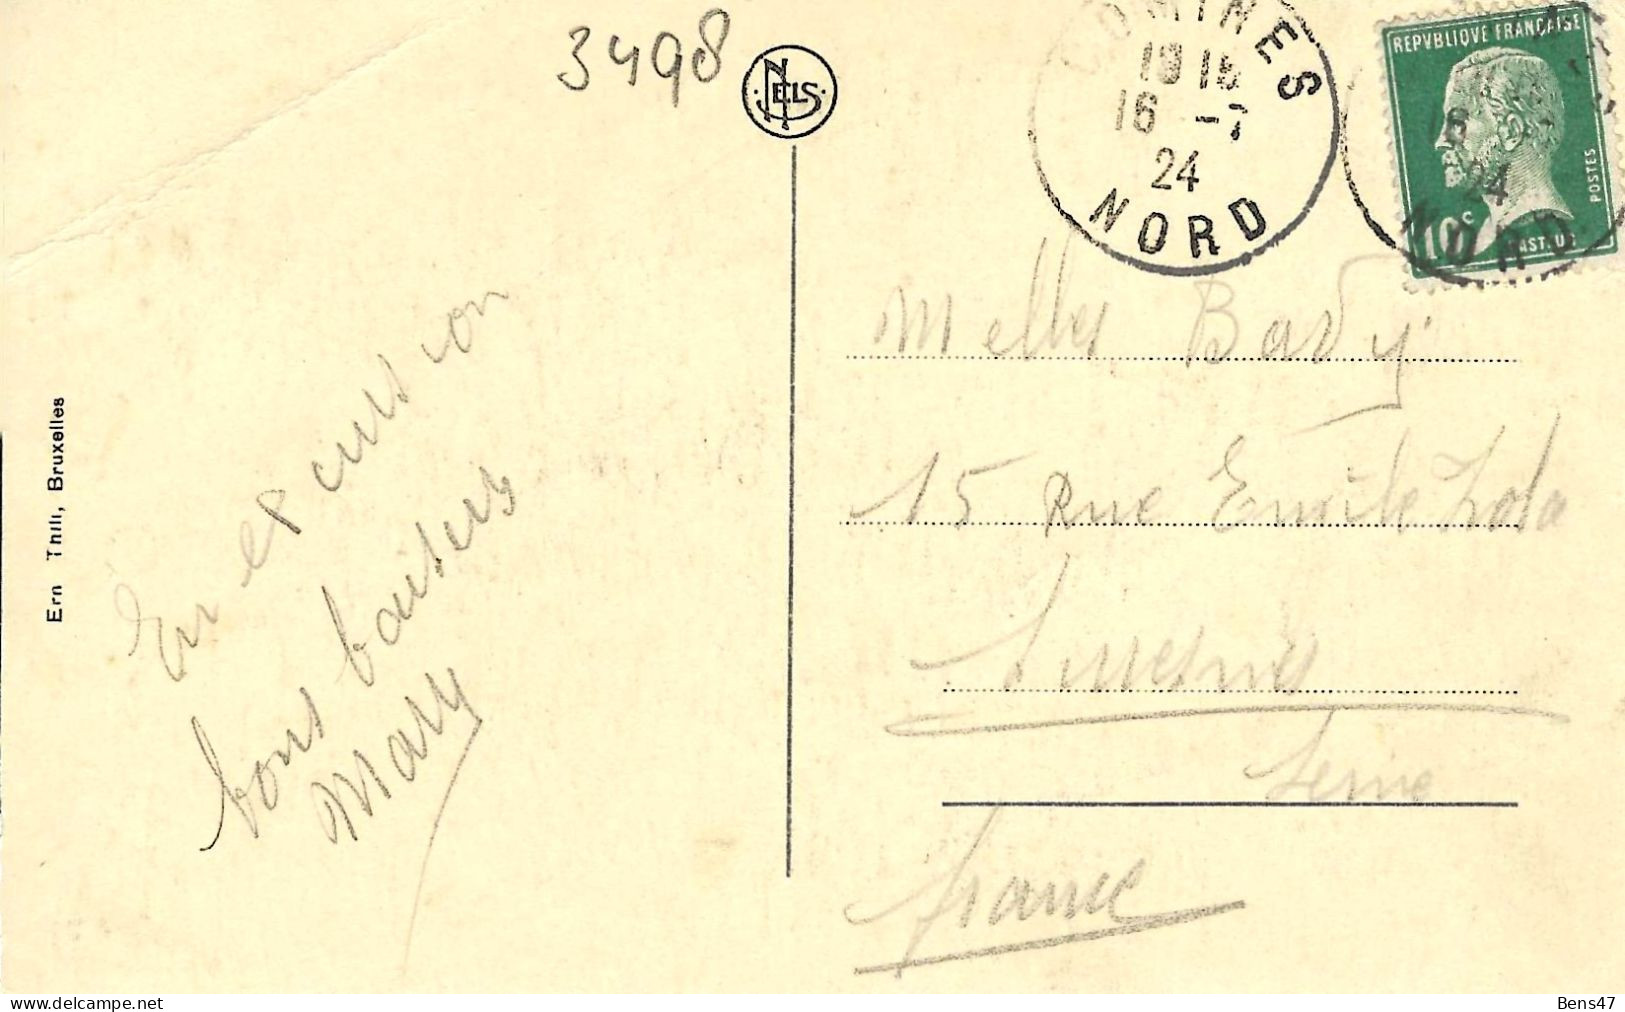 3498
NELS
COMINES
19 15
16 -7
24
NORD
REPVBLIQVE FRANÇAISE
POSTES
10c
PASTEUR
16
24
NORD
Ern Thill, Bruxelles
En excursion
bons baisers
Mary
Melles Bady
15 Rue Emile Zola
Suresnes
Seine
France
delcampe.net
Bens47